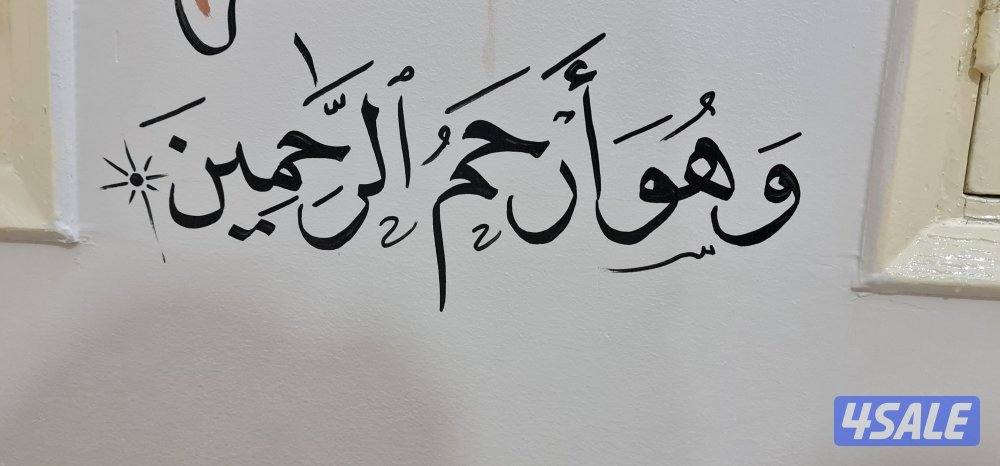 وَهُوَ أَرْحَمُ ٱلرَّٰحِمِينَ
4SALE